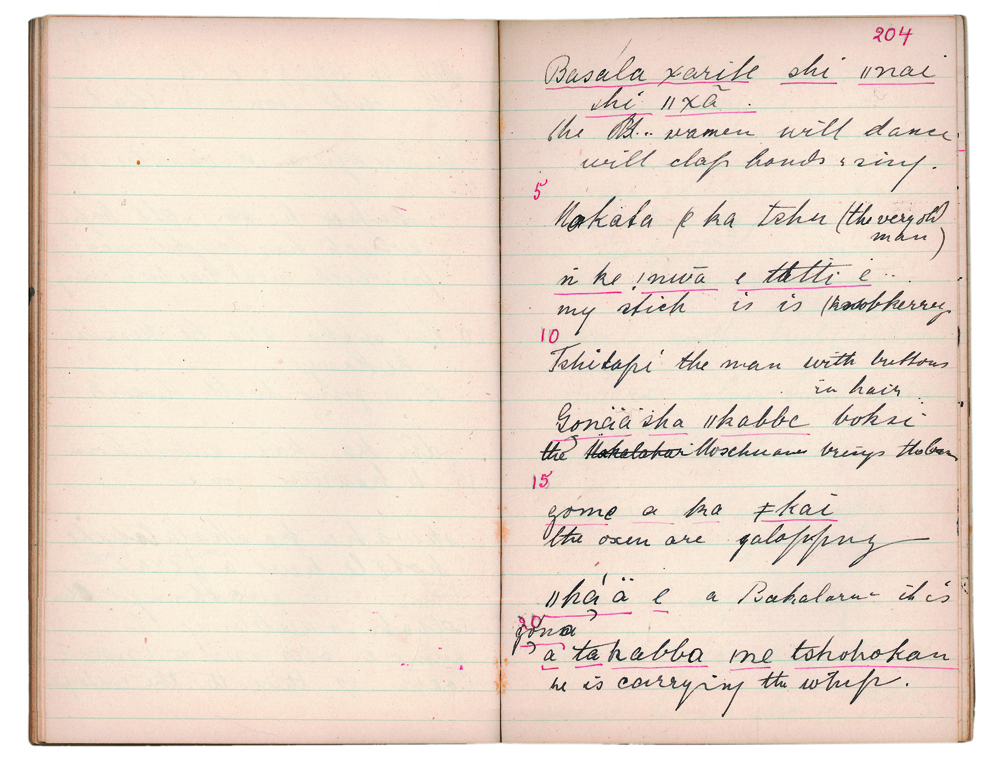 204
Basála xarise shi ǁnai
shi ǁxā.
the B.. women will dance
will clap hands & sing.
5
Makala e ka tshu (the very old
man)
ń ke !nwā e thutti e..
my stick is is (knobkerry
10
Tshitapi the man with buttons
in hair.
Gonääsha ǁkabbe boksi
the Makalahari Moschuane brings the box
15
gome a ka ǂkai
the oxen are galopping
ǁkáä e a Bakalarue it is
20
gona
a takabba me tshohokau
he is carrying the whip.